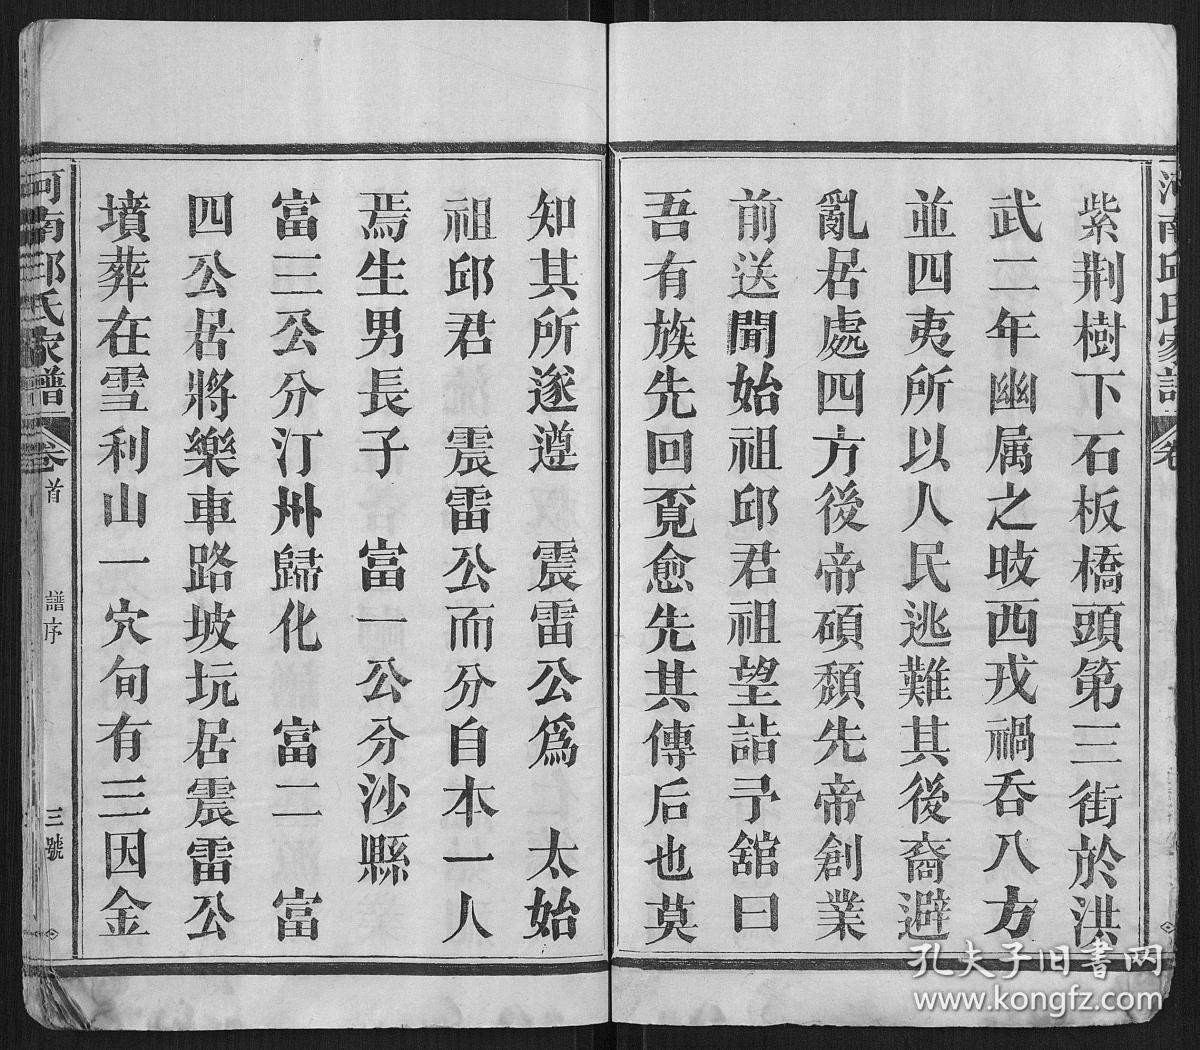 紫荆樹下石板橋頭第三街於洪
武二年幽属之時西戎禍吞八方
並四夷所以人民逃難其後裔避
亂居處四方後帝碩頽先帝創業
前送聞始祖邱君祖望詣予舘曰
吾有族先回覔愈先其傳后也莫
知其所遂遵　震雷公爲　太始
祖邱君　震雷公而分自本一人
焉生男長子　富一公分沙縣
富三公分汀州歸化　富二　富
四公居將樂車路坡坑居震雷公
墳葬在雪利山一穴旬有三因金
河南邱氏家譜
卷首
譜序
三號
河南邱氏家譜
孔夫子旧书网
www.kongfz.com